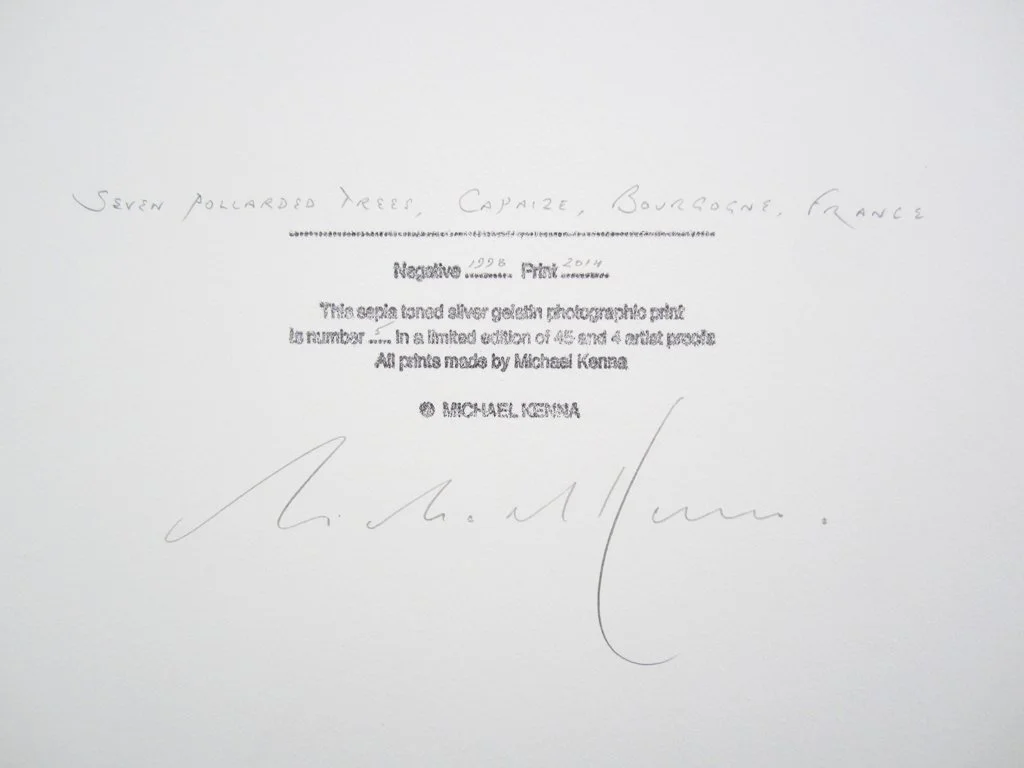 SEVEN POLLARDED TREES, CAPAIZE, BOURGOGNE, FRANCE
Negative 1998 Print 2014
This sepia toned silver gelatin photographic print
is number 5 in a limited edition of 45 and 4 artist proofs
All prints made by Michael Kenna
© MICHAEL KENNA
Michael Kenna.